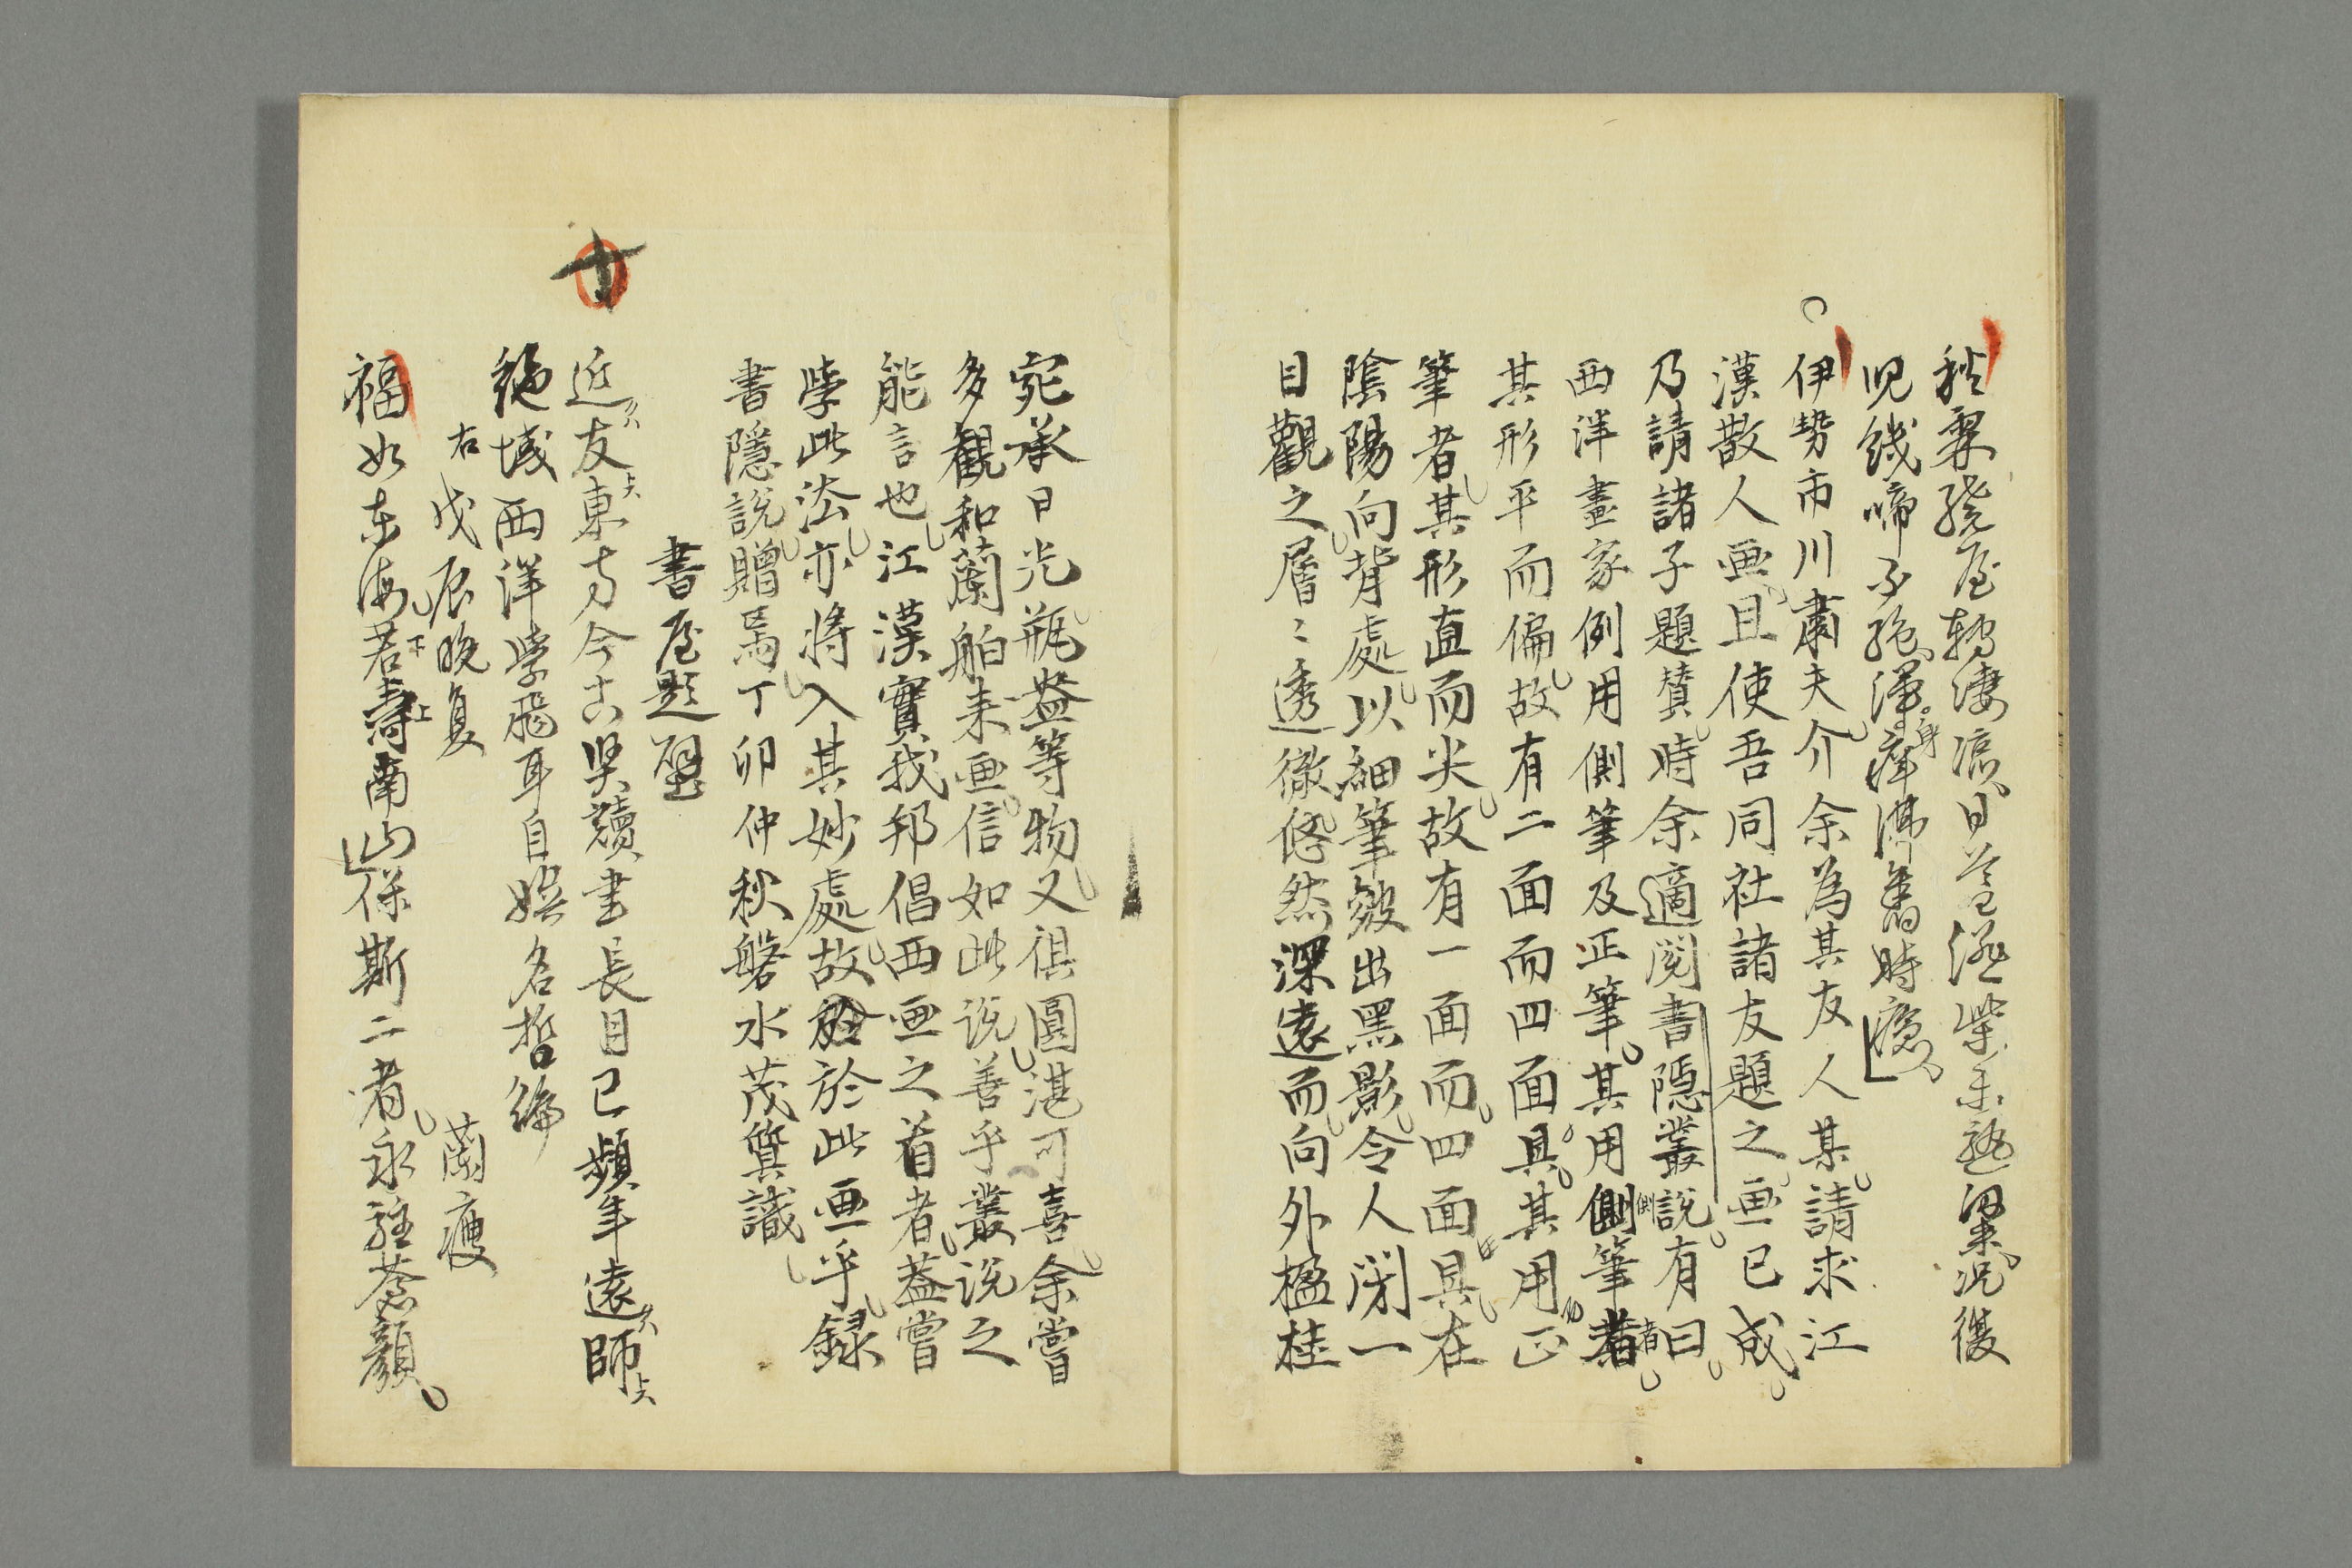 秋霖繞屋轉凄涼日暮
児饑啼不絶渾身痒沸舊時瘡
伊勢市川肅夫介余為其友人某請求江
漢散人画且使吾同社諸友題之画已成
乃請諸子題賛時余適閲書隠叢說有曰
西洋畫家例用側筆及正筆其用側筆者
其形平而偏故有二面而四面具其用正
筆者其形直而尖故有一面而四面具在
陰陽向背處以細筆皴出黑影令人閉一
目觀之層〻透徹悠然深遠而向外楹柱
宛承日光瓶盎等物又俱圓湛可喜余嘗
多觀和蘭舶来画信如此說善乎叢説之
能言也江漢實我邦倡西画之首者蓋嘗
學此法亦將入其妙處故於此画乎録
書隠說贈焉丁卯仲秋磐水茂質識
書屋題壁
近友東方今古賢讀書長目已頻年遠師
絶域西洋學飛耳自娯名哲編
右戊辰晩夏
蘭瘦
福如東海若壽南山保斯二者永駐蒼顏